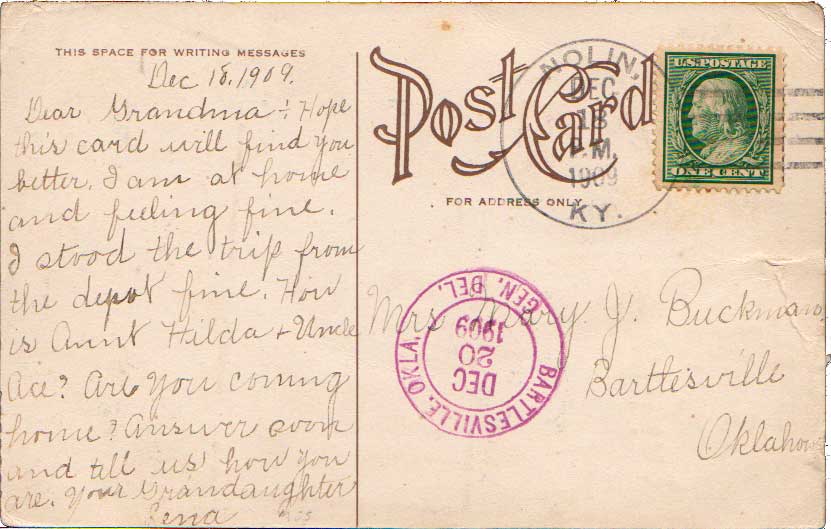 THIS SPACE FOR WRITING MESSAGES
Dec 18, 1909.
Dear Grandma :- Hope
this card will find you
better. I am at home
and feeling fine.
I stood the trip from
the depot fine. How
is Aunt Hilda + Uncle
Ace? Are you coming
home? Answer soon
and till us how you
are. Your Grandaughter
Rena
Post Card
FOR ADDRESS ONLY
NOLIN,
DEC
18
P.M.
1909
KY.
U.S. POSTAGE
ONE CENT
BARTLESVILLE, OKLA.
GEN. DEL.
DEC
20
1909
Mrs Mary J. Buckman,
Bartlesville
Oklahoma